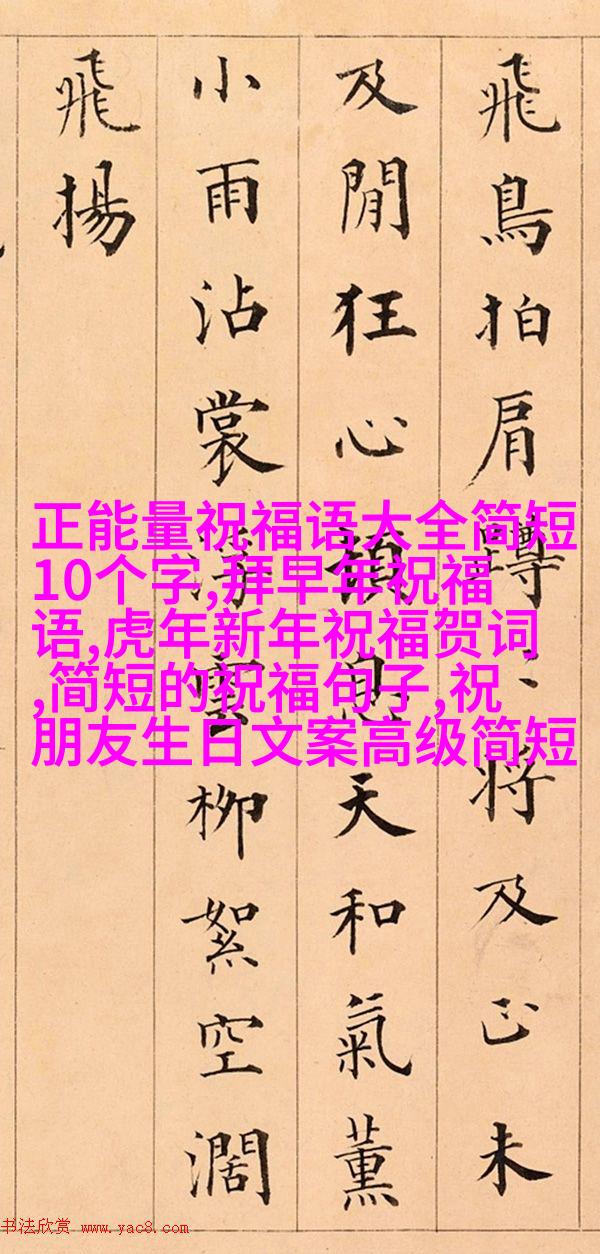 飛鳥拍肩轉〻將及未
及閒狂心頓息天和氣薰
小雨沾裳浮雲柳絮空濶
飛揚
正能量祝福语大全简短
10个字,拜早年祝福
语,虎年新年祝福贺词
,简短的祝福句子,祝
朋友生日文案高级简短
书法欣赏 www.yac8.com